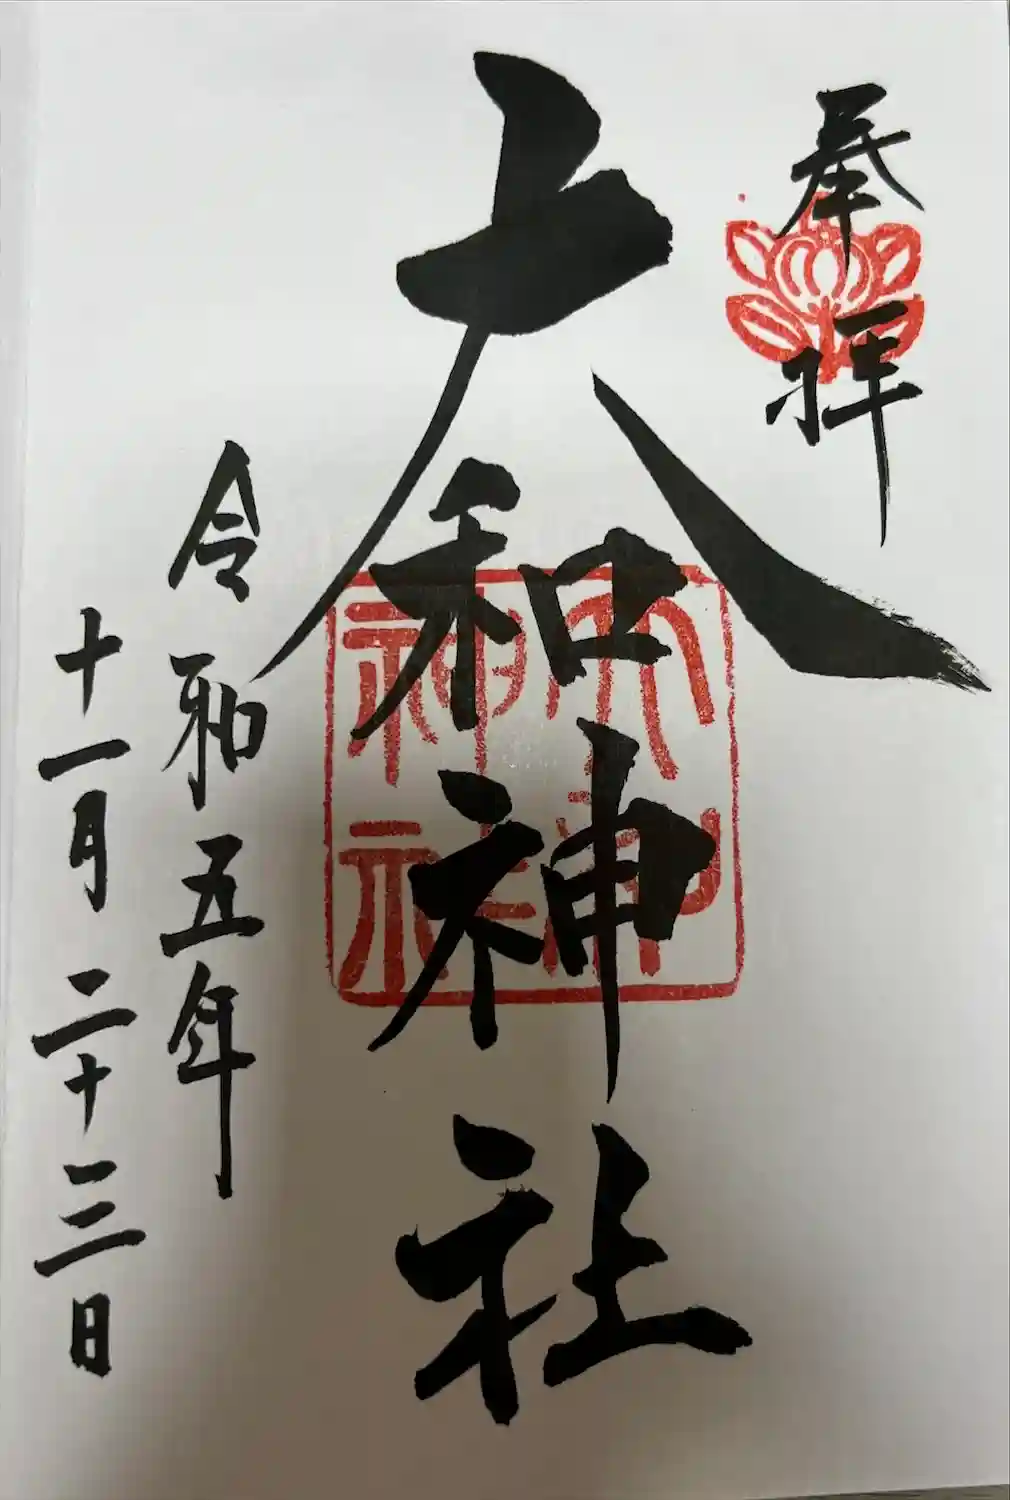 奉拝
大和神社
令和五年
十一月二十三日